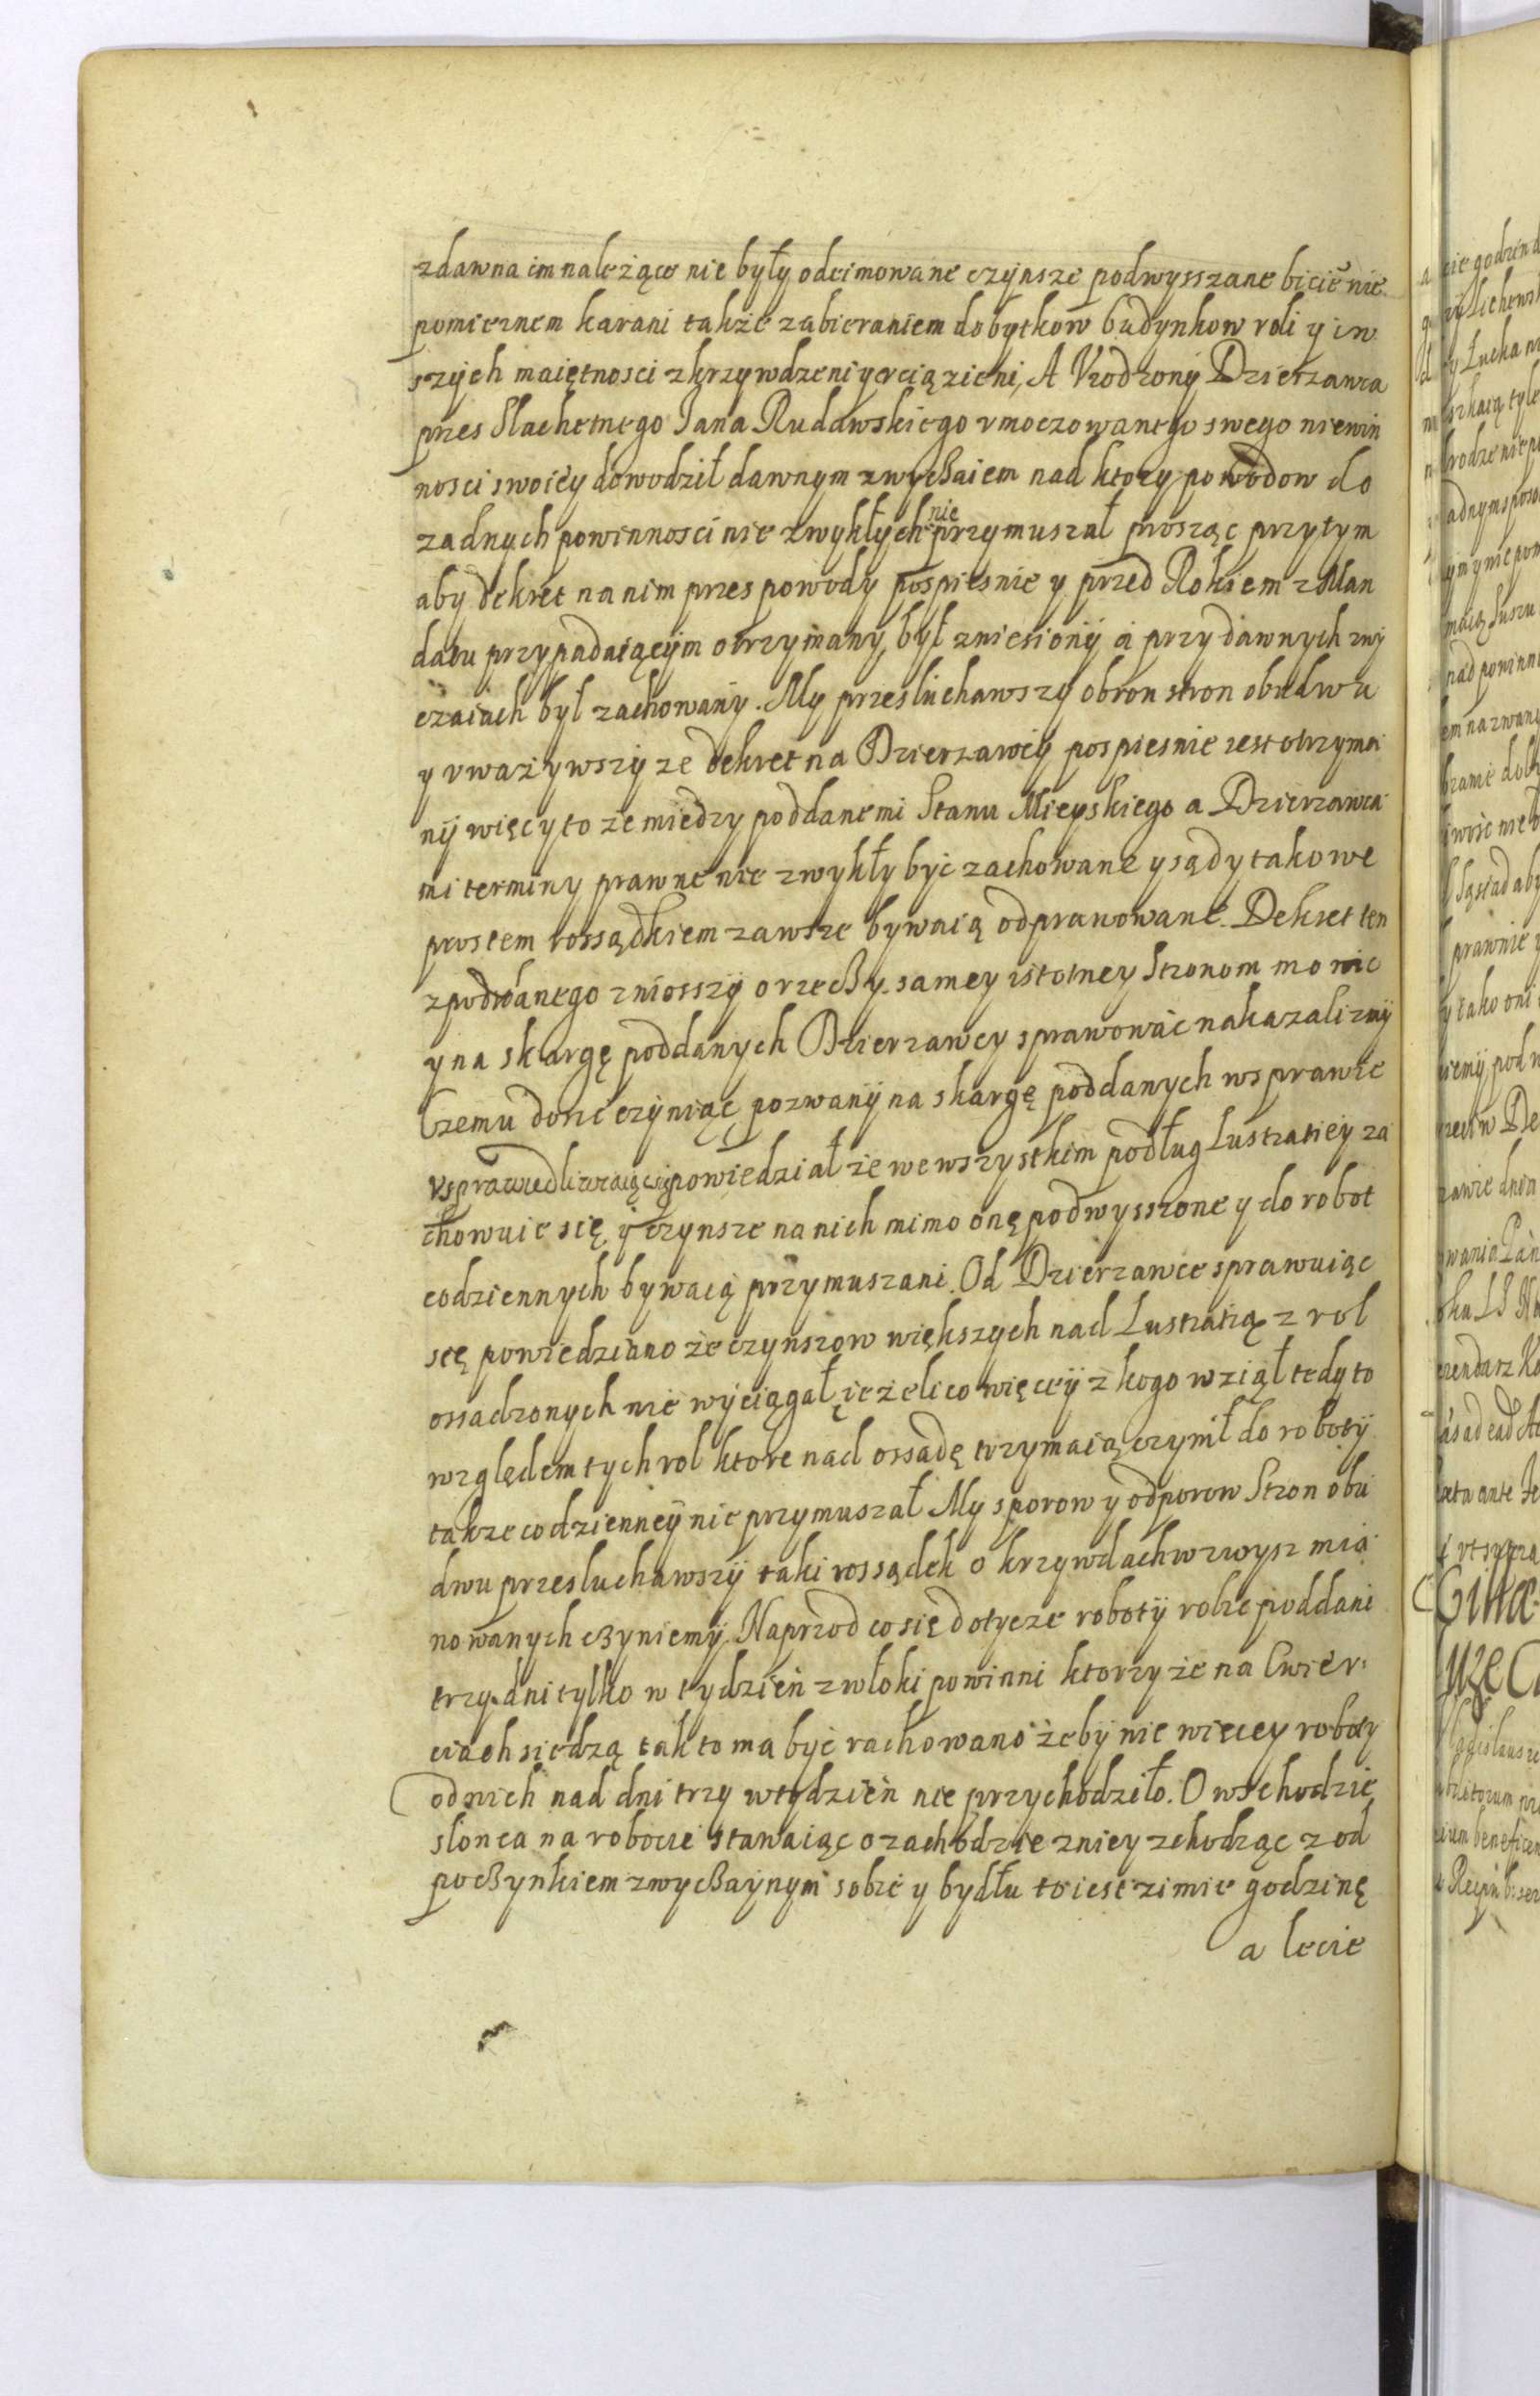 zdawna im należące nie były odeimowane czynsze podwysszane biciē nie
pomiernem karani także zabieraniem dobytkow budynkow roli y in
szych maiętnosci zkrzywdzeni y vciązieni, A Vrodzony Dzierzawca
przes Slachetnego Jana Rudawskiego vmoczowanego swego niewin
nosci swoiey dowodził dawnym zwyczaiem nad ktory powodow do
zadnych powinnosci nie zwykłych nie przymuszał prosząc przytym
aby dekret na nim przes powody pospiesnie y przed Rokiem z Man
datu przypadaiącym otrzymany był zniesiony a przy dawnych zwy
czaiach był zachowany. My przesluchawszy obron stron obudwu
y vważywszy ze dekret na Dzierzawcy pospiesnie iest otrzyma
ny więcy to że miedzy poddanemi Stanu Mieyskiego a Dzierzawca
mi terminy prawne nie zwykły być zachowane y sądy takowe
prostem rossądkiem zawsze bywaią odprawowane. Dekret ten
zpodobanego zniosszy o rzeczy samey istotney Stronom mowic
y na skargę poddanych Dzierzawcy sprawować nakazalizmy
Czemu dosić czyniąc pozwany na skargę poddanych w sprawie
vsprawiedliwiaiąc się powiedział że we wszystkim podług Lustratiey za
chowuie się y czynsze na nich mimo onę podwysszone y do robot
codziennych bywaią przymuszani. Od Dzierzawce sprawuiąc
się powiedziano że czynszow większych nad Lustratią z rol
ossadzonych nie wyciągał ieżeli co więcey z kogo wziął tedy to
względem tych rol ktore nad ossadę trzymaią czynił do roboty
takze codzienney nie przymuszał My sporow y odporow Stron obu
dwu przesluchawszy taki rossądek o krzywdach wzwysz mia
nowanych czyniemy. Naprzod co się dotycze roboty robic poddani
trzy dni tylko w tydzień z włoki powinni ktorzy że na Cwier:
ciach siedzą tak to ma być rachowano żeby nie więcey roboty
od nich nad dni trzy w tydzień nie przychodziło. O wschodzie
słonca na robocie stawaiąc o zachodzie z niey zchodząc z od
poczynkiem zwyczaynym sobie y bydłu to iest zimie godzinę
a lecie